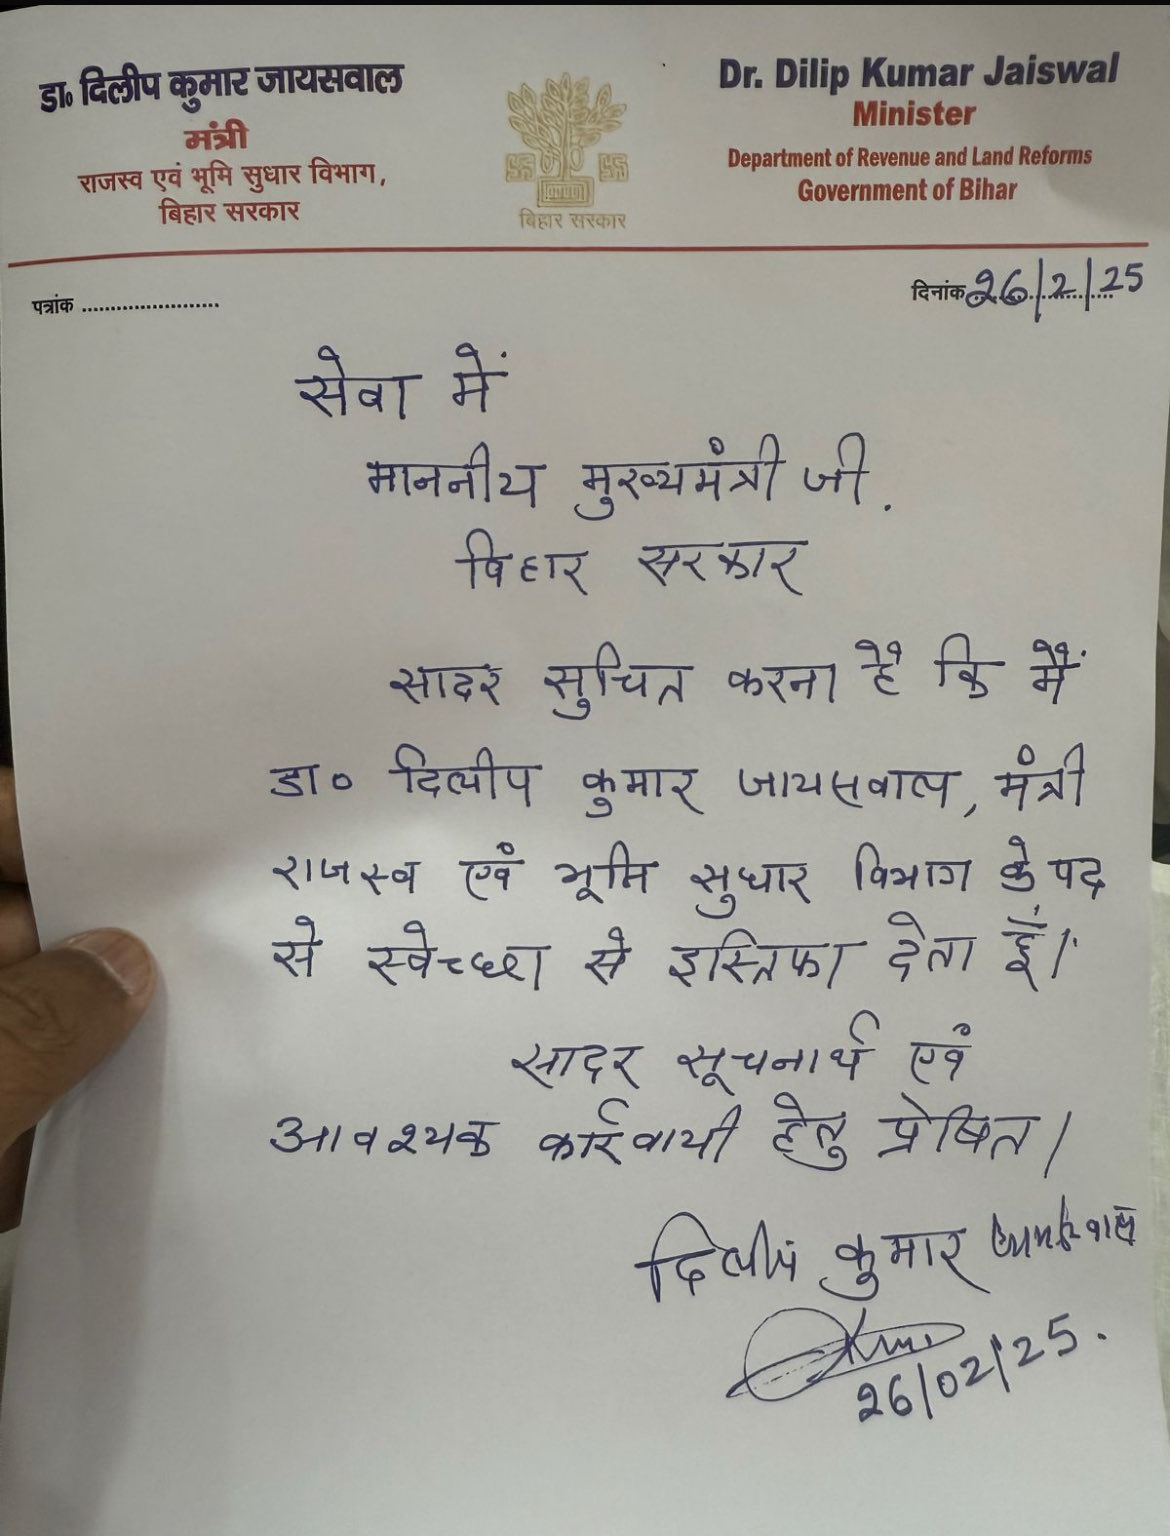 डा० दिलीप कुमार जायसवाल
मंत्री
राजस्व एवं भूमि सुधार विभाग,
बिहार सरकार
बिहार सरकार
Dr. Dilip Kumar Jaiswal
Minister
Department of Revenue and Land Reforms
Government of Bihar
पत्रांक .......................
दिनांक 26/2/25
सेवा में
माननीय मुख्यमंत्री जी.
बिहार सरकार
सादर सुचित करना है कि मैं
डा० दिलीप कुमार जायसवाल, मंत्री
राजस्व एवं भूमि सुधार विभाग के पद
से स्वेच्छा से इस्तिफा देता हूँ।
सादर सूचनार्थ एवं
आवश्यक कार्रवायी हेतु प्रेषित।
दिलीप कुमार
26/02/25.